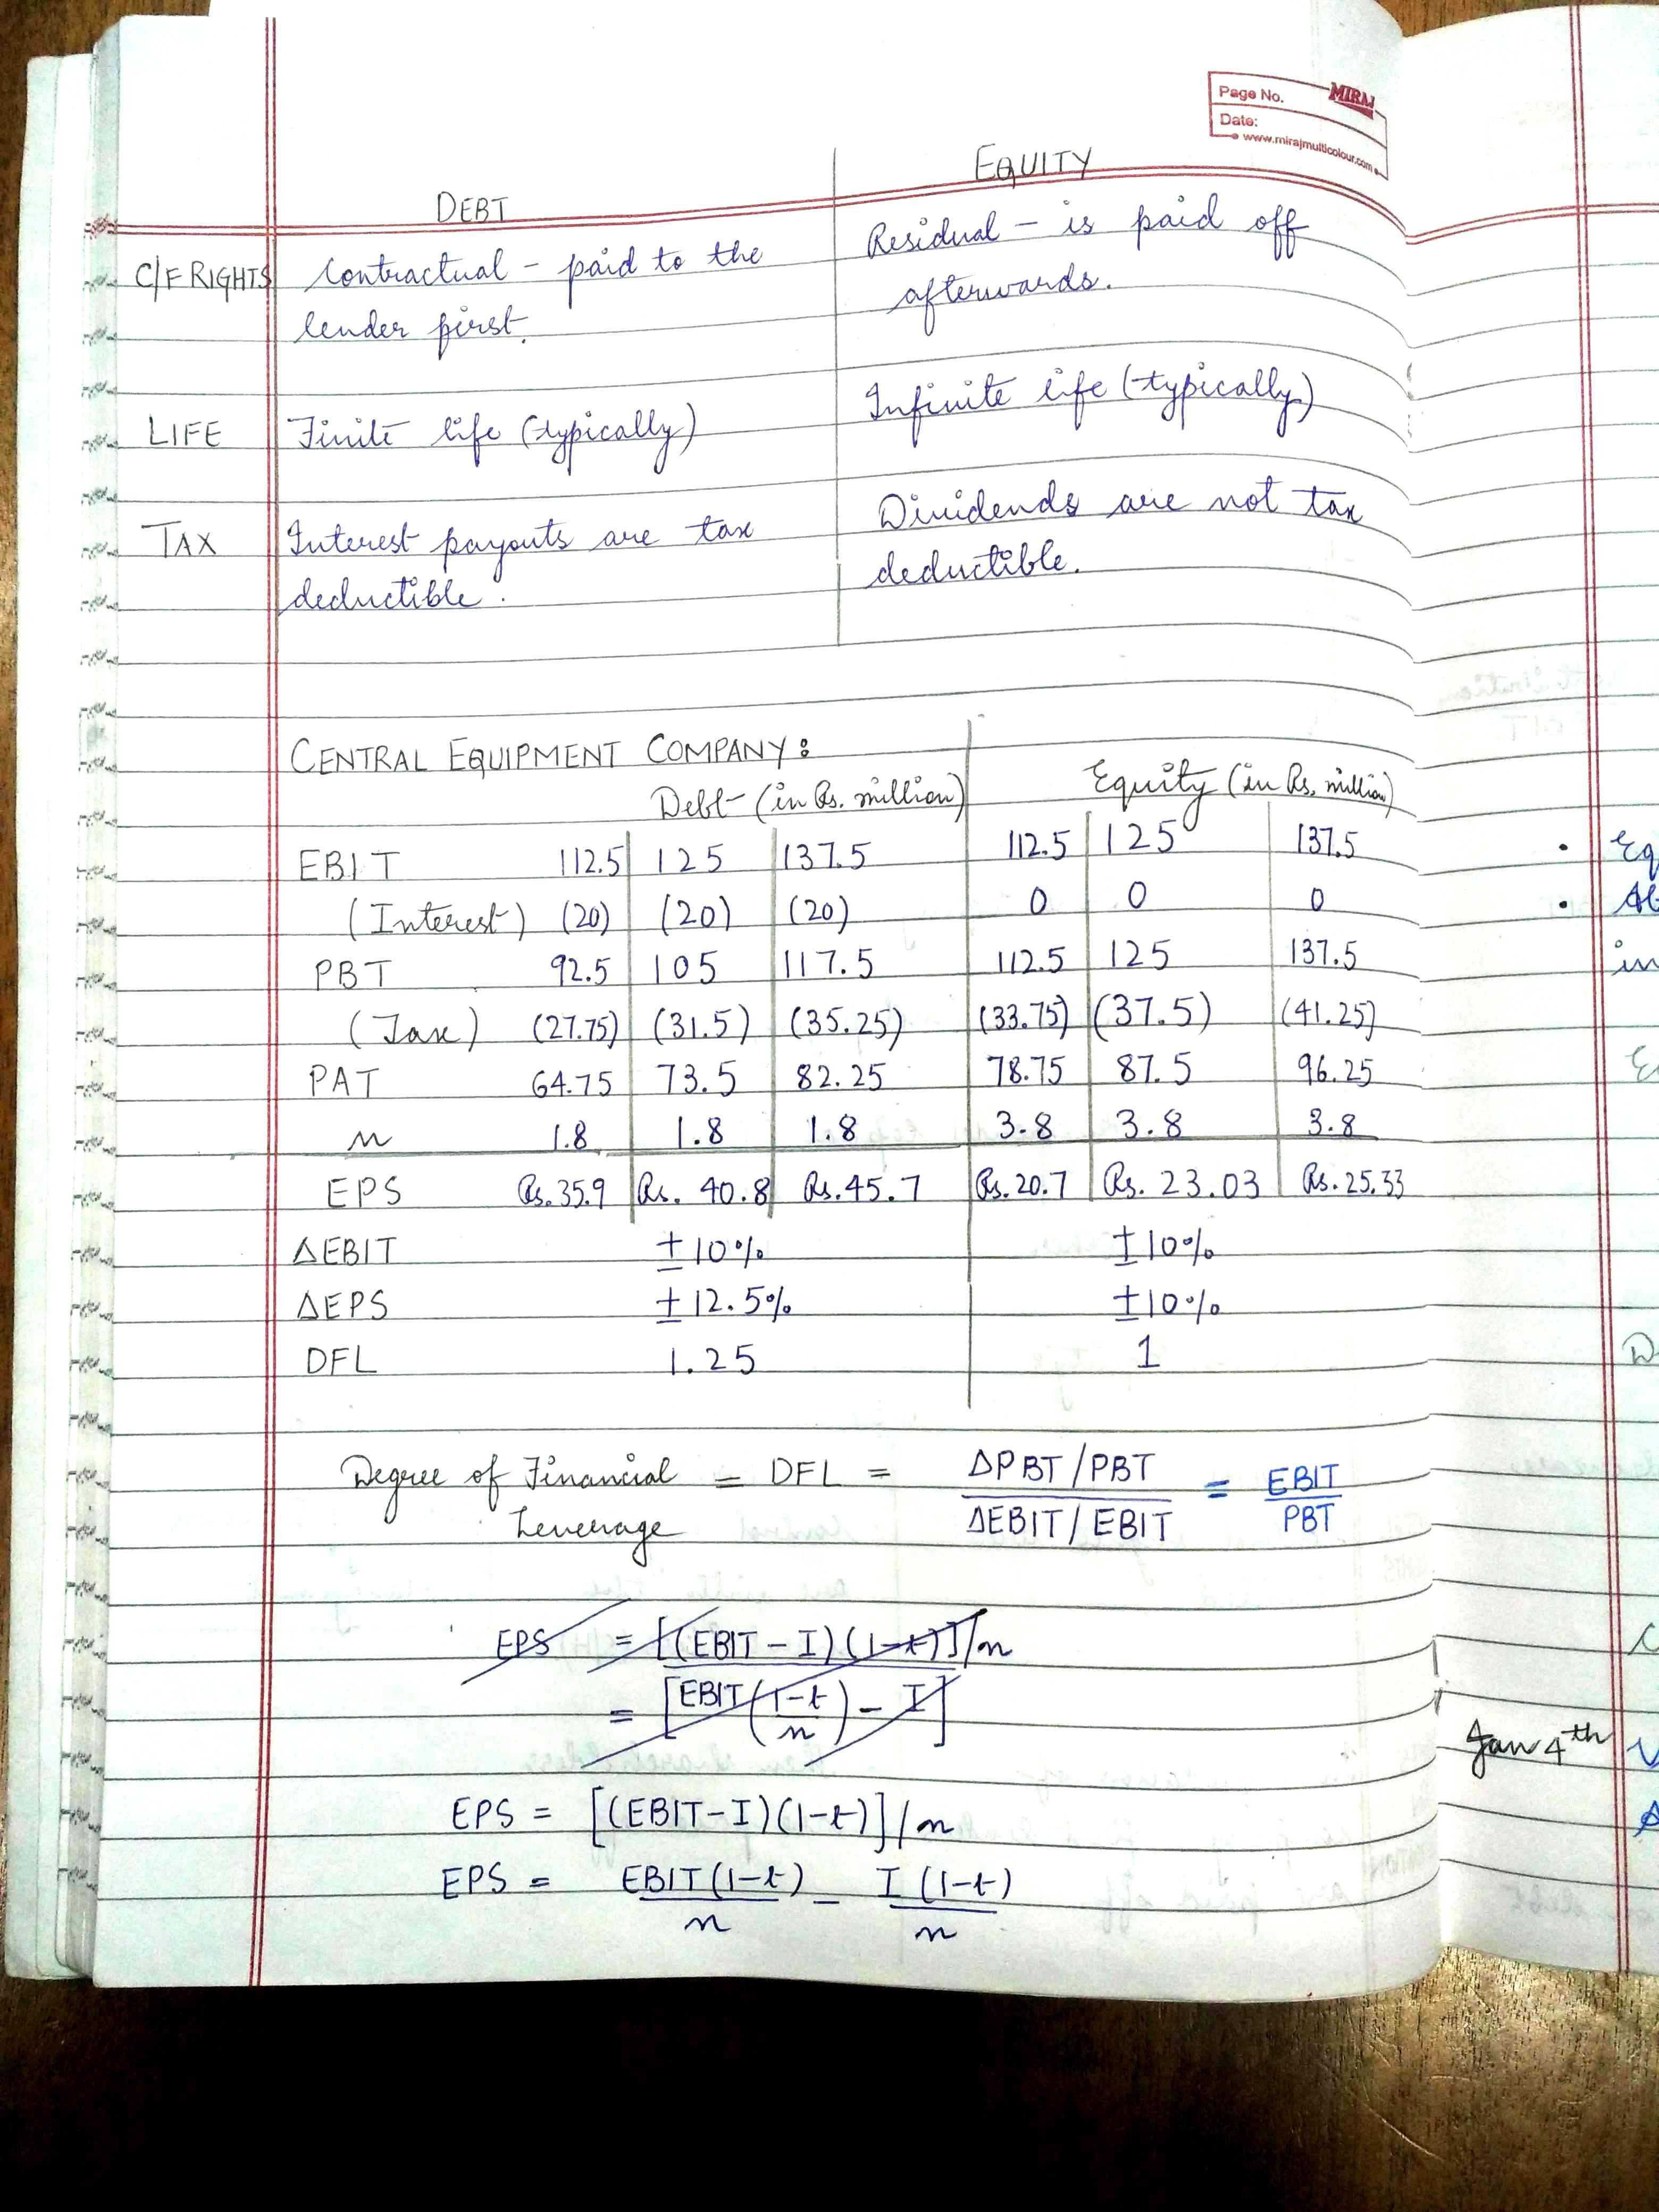 Page No. MIRAJ
Date:
www.mirajmulticolour.com
DEBT EQUITY
C/F RIGHTS Contractual - paid to the Residual - is paid off
lender first. afterwards.
LIFE Finite life (typically) Infinite life (typically)
TAX Interest payouts are tax Dividends are not tax
deductible. deductible.
CENTRAL EQUIPMENT COMPANY:
Debt (in Rs. million) Equity (in Rs. million)
EBIT 112.5 125 137.5 112.5 125 137.5
(Interest) (20) (20) (20) 0 0 0
PBT 92.5 105 117.5 112.5 125 137.5
(Tax) (27.75) (31.5) (35.25) (33.75) (37.5) (41.25)
PAT 64.75 73.5 82.25 78.75 87.5 96.25
n 1.8 1.8 1.8 3.8 3.8 3.8
EPS Rs.35.9 Rs. 40.8 Rs.45.7 Rs.20.7 Rs. 23.03 Rs.25.33
ΔEBIT ±10% ±10%
ΔEPS ±12.5% ±10%
DFL 1.25 1
Degree of Financial Leverage = DFL = (ΔPBT/PBT) / (ΔEBIT/EBIT) = EBIT/PBT
EPS = [(EBIT-I)(1-t)]/n
= [EBIT((1-t)/n) - I]
EPS = [(EBIT-I)(1-t)]/n
EPS = EBIT(1-t)/n - I(1-t)/n
Jan 4th